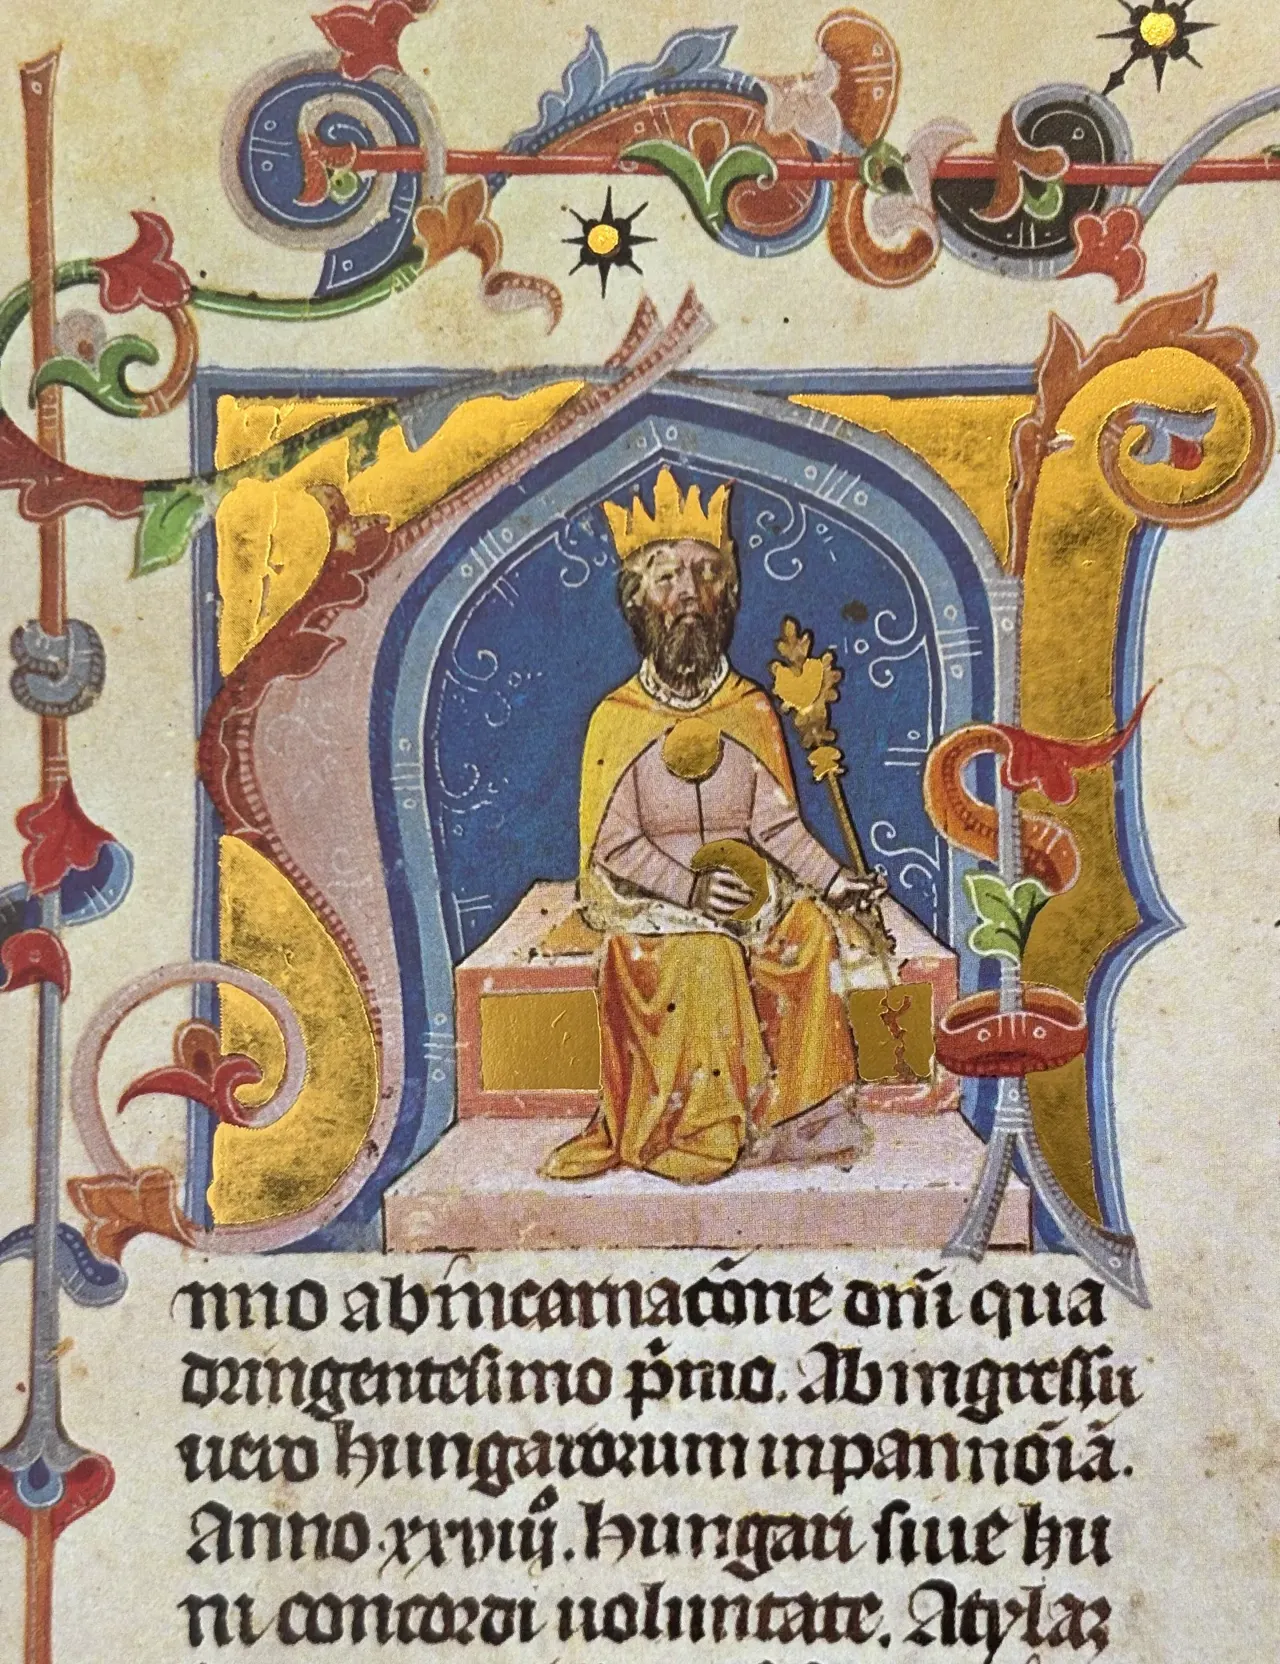 nno ab incarnacōne dn̄i qua
dringentesimo p̄mo. Ab ingressu
uero hungarorum in pannōiā.
Anno .xxviiį. hungari siue hu
ni concordi uoluntate. Atylaʒ